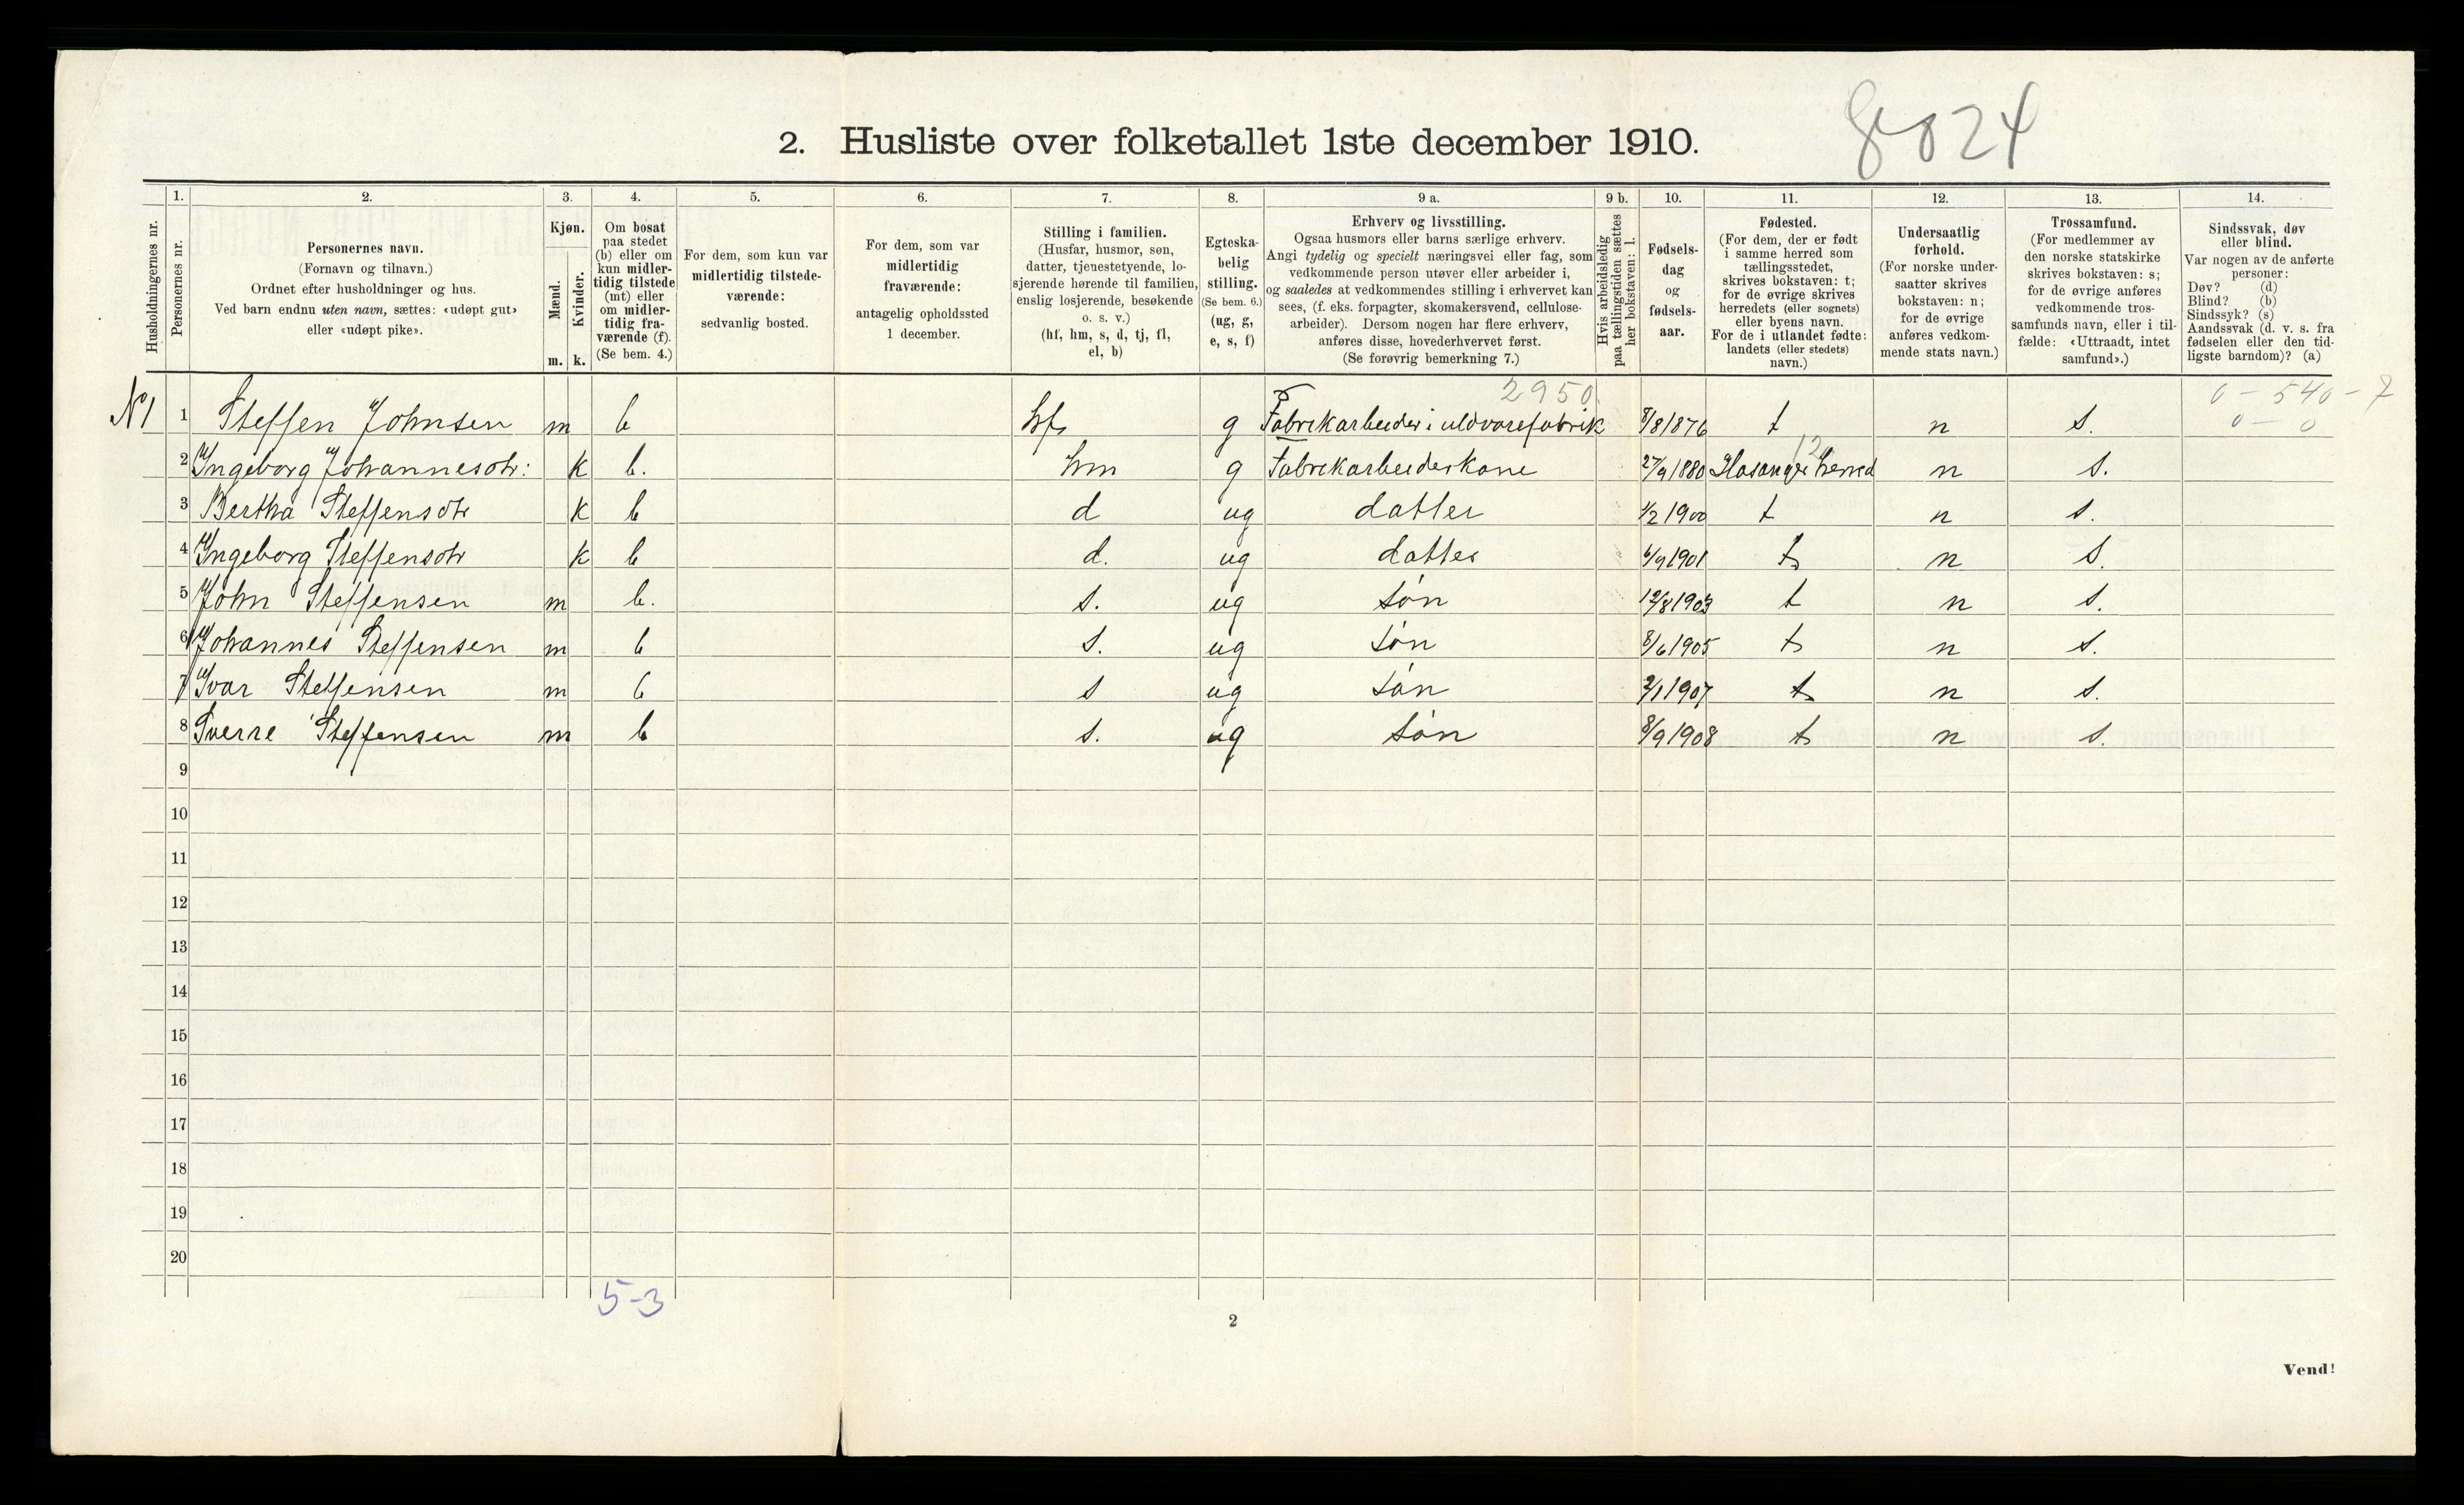 2. Husliste over folketallet 1ste december 1910.
8024
Husholdningernes nr.
1. Personernes nr.
2. Personernes navn.
(Fornavn og tilnavn.)
Ordnet efter husholdninger og hus.
Ved barn endnu uten navn, sættes: «udøpt gut»
eller «udøpt pike».
3. Kjøn.
Mænd. m.
Kvinder. k.
4. Om bosat
paa stedet
(b) eller om
kun midler-
tidig tilstede
(mt) eller
om midler-
tidig fra-
værende (f).
(Se bem. 4.)
5. For dem, som kun var
midlertidig tilstede-
værende:
sedvanlig bosted.
6. For dem, som var
midlertidig
fraværende:
antagelig opholdssted
1 december.
7. Stilling i familien.
(Husfar, husmor, søn,
datter, tjenestetyende, lo-
sjerende hørende til familien,
enslig losjerende, besøkende
o. s. v.)
(hf, hm, s, d, tj, fl,
el, b)
8. Egteska-
belig
stilling.
(Se bem. 6.)
(ug, g,
e, s, f)
9 a. Erhverv og livsstilling.
Ogsaa husmors eller barns særlige erhverv.
Angi tydelig og specielt næringsvei eller fag, som
vedkommende person utøver eller arbeider i,
og saaledes at vedkommendes stilling i erhvervet kan
sees, (f. eks. forpagter, skomakersvend, cellulose-
arbeider). Dersom nogen har flere erhverv,
anføres disse, hovederhvervet først.
(Se forøvrig bemerkning 7.)
9 b. Hvis arbeidsledig
paa tællingstiden sættes
her bokstaven: l.
10. Fødsels-
dag
og
fødsels-
aar.
11. Fødested.
(For dem, der er født
i samme herred som
tællingsstedet,
skrives bokstaven: t;
for de øvrige skrives
herredets (eller sognets)
eller byens navn.
For de i utlandet fødte:
landets (eller stedets)
navn.)
12. Undersaatlig
forhold.
(For norske under-
saatter skrives
bokstaven: n;
for de øvrige
anføres vedkom-
mende stats navn.)
13. Trossamfund.
(For medlemmer av
den norske statskirke
skrives bokstaven: s;
for de øvrige anføres
vedkommende tros-
samfunds navn, eller i til-
fælde: «Uttraadt, intet
samfund».)
14. Sindssvak, døv
eller blind.
Var nogen av de anførte
personer:
Døv? (d)
Blind? (b)
Sindssyk? (s)
Aandssvak (d. v. s. fra
fødselen eller den tid-
ligste barndom)? (a)
2950
0 - 540 - 7
0 - 0
N 1 1 Steffen Johnsen m b hf g Fabrikarbeider i uldvarefabrik 8/8 1876 t n s.
12
2 Ingeborg Johannesdtr: k b. hm g Fabrikarbeiderkone 27/9 1880 Hosanger herred n s.
3 Bertha Steffensdtr k b d ug datter 1/2 1900 t n s.
4 Ingeborg Steffensdtr k b d. ug datter 6/9 1901 t n s.
5 John Steffensen m b. s. ug søn 12/8 1903 t n s.
6 Johannes Steffensen m b s. ug søn 8/6 1905 t n s.
7 Ivar Steffensen m b s ug søn 2/1 1907 t n s.
8 Sverre Steffensen m b s. ug søn 8/9 1908 t n s.
9
10
11
12
13
14
15
16
17
18
19
20
5-3
2
Vend!